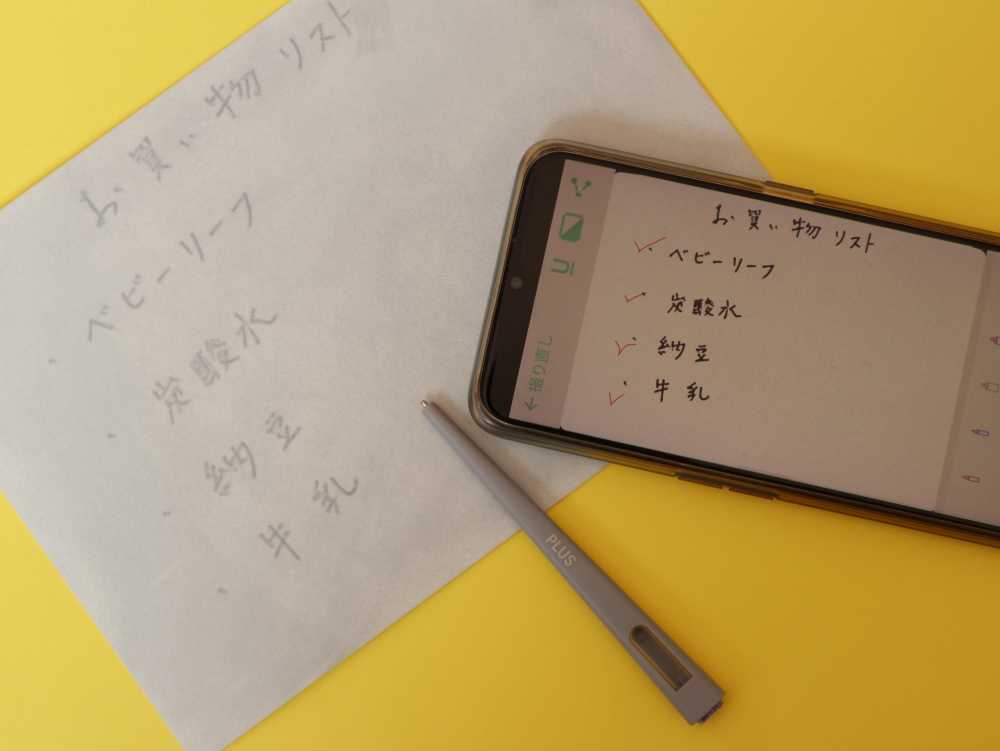 お買い物リスト
・ベビーリーフ
・炭酸水
・納豆
・牛乳
PLUS
← 撮り直し
お買い物リスト
・ベビーリーフ
・炭酸水
・納豆
・牛乳